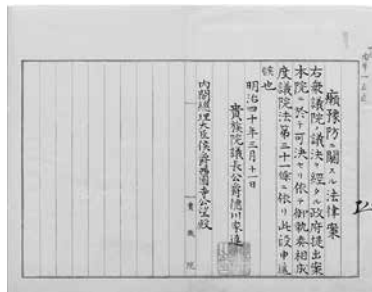 癩豫防ニ關スル法律案
右衆議院ノ議決ヲ經タル政府提出案
本院ニ於テ可決セリ依テ御執奏相成
度議院法第三十一條ニ依リ此段申進
候也
明治四十年三月十一日
貴族院議長公爵德川家達
内閣總理大臣侯爵西園寺公望殿
貴族院